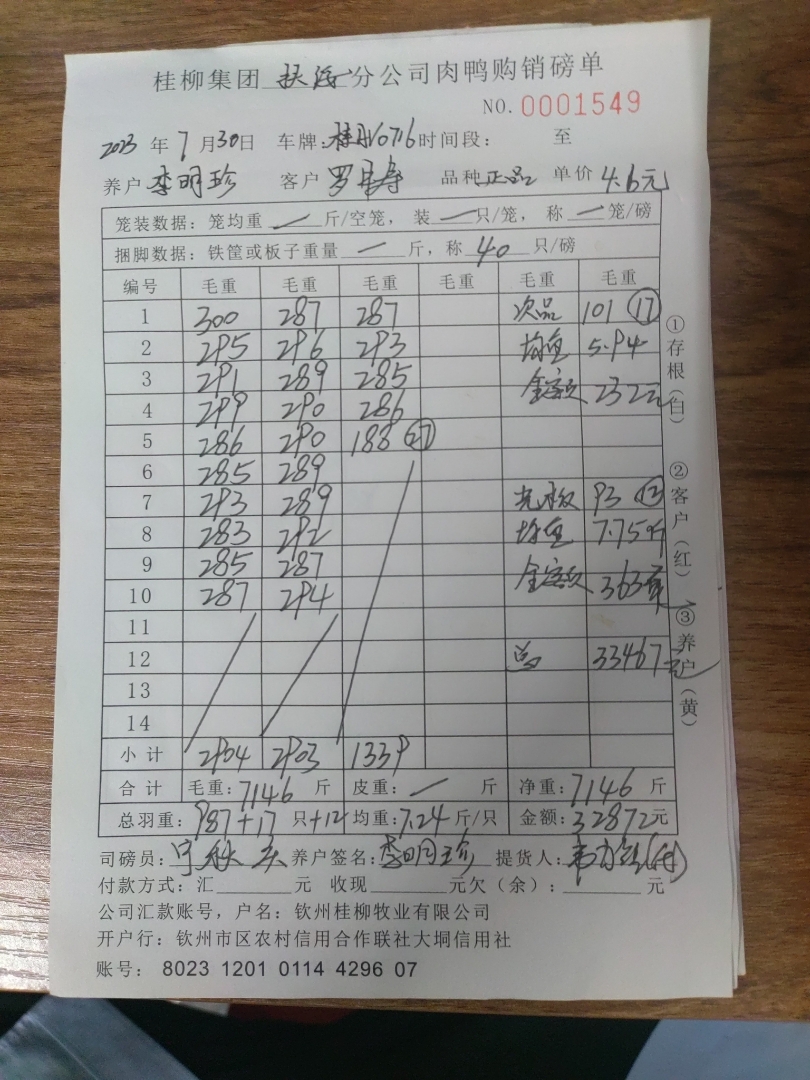 桂柳集团 扶绥 分公司肉鸭购销磅单
NO. 0001549
2023 年 7 月 30 日 车牌: 0716 时间段: 至
养户 李明珍 客户 罗 寿 品种 正品 单价 4.6元
笼装数据: 笼均重 — 斤/空笼, 装 — 只/笼, 称 — 笼/磅
捆脚数据: 铁筐或板子重量 — 斤, 称 40 只/磅
编号 毛重 毛重 毛重 毛重 毛重 毛重
1 300 287 287 次品 101 ⑰
2 295 296 293 均重 5.94
3 291 289 285 金额 232元
4 299 290 286
5 286 290 188 ㉗
6 285 289
7 293 289 93 ⑫
8 283 292 均重 7.75斤
9 285 287 金额 363元
10 287 294
11
12 总 33467元
13
14
小计 2904 2903 1339
合计 毛重: 7146 斤 皮重: — 斤 净重: 7146 斤
总羽重: 987+17 只+12 均重: 7.24 斤/只 金额: 32872 元
司磅员: 宁秋 养户签名: 李明珍 提货人:
付款方式: 汇 元 收现 元欠(余): 元
公司汇款账号, 户名: 钦州桂柳牧业有限公司
开户行: 钦州市区农村信用合作联社大垌信用社
账号: 8023 1201 0114 4296 07
①存根(白)
②客户(红)
③养户(黄)